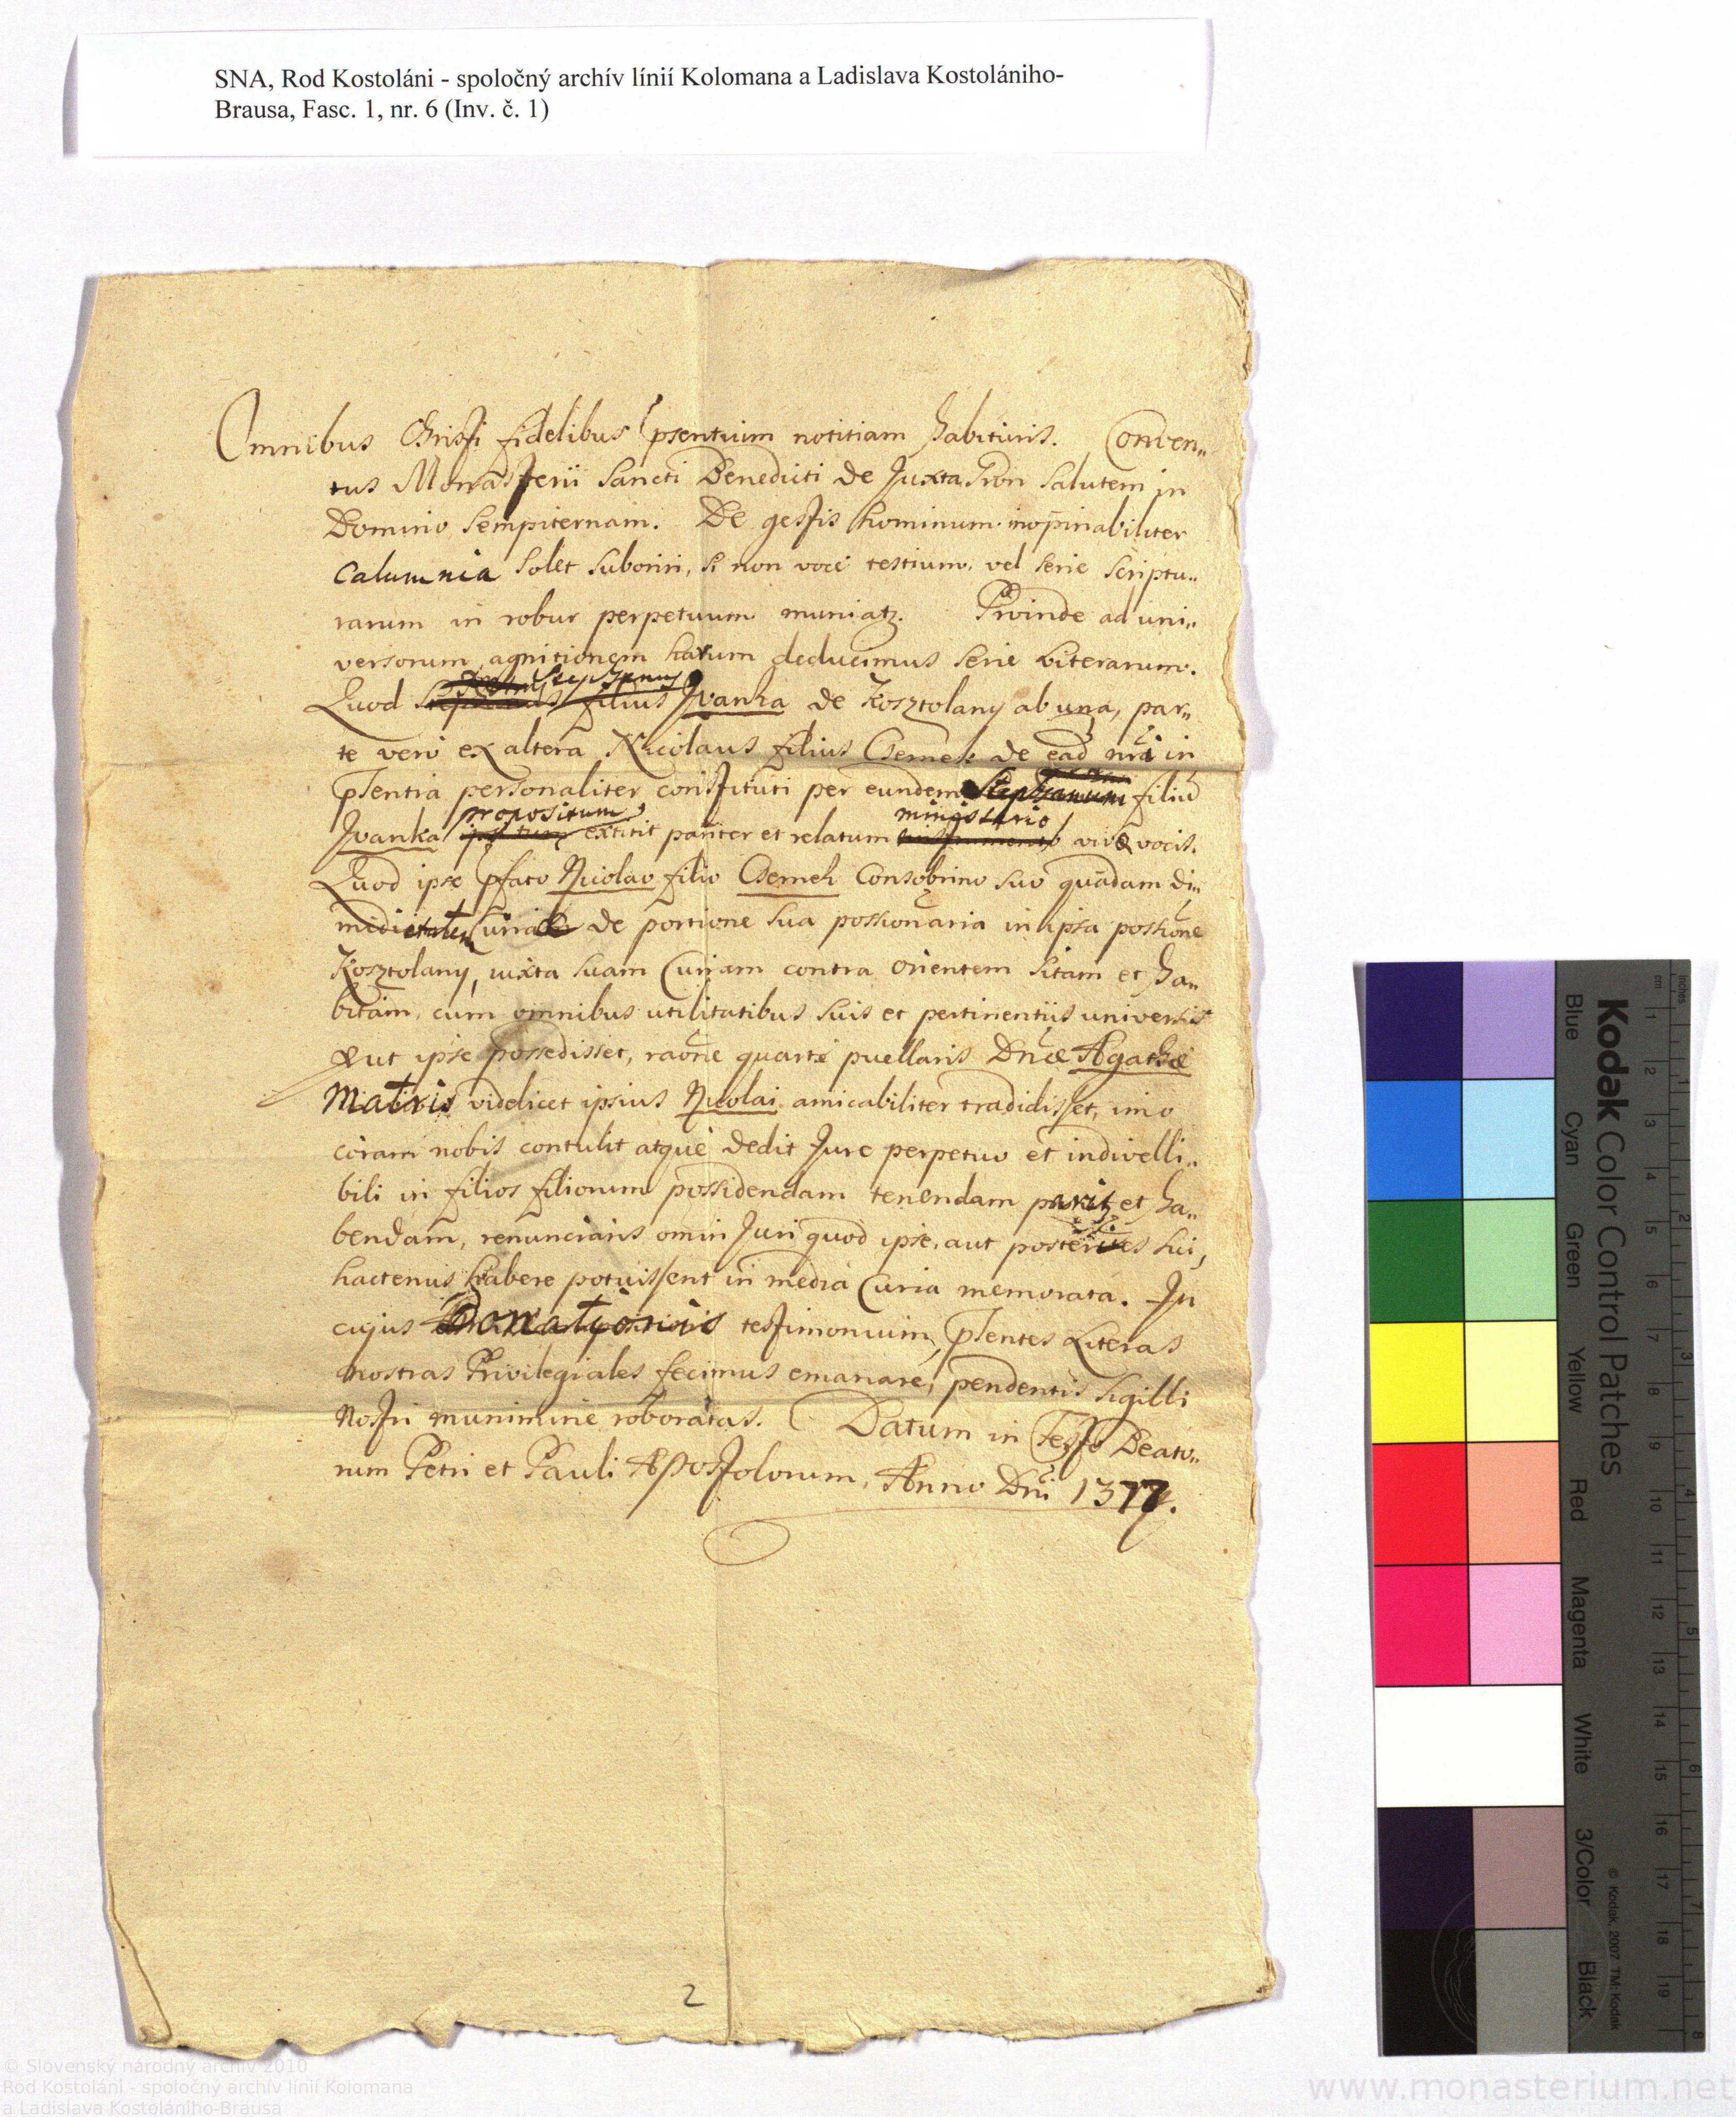 SNA, Rod Kostoláni - spoločný archív línií Kolomana a Ladislava Kostolániho-
Brausa, Fasc. 1, nr. 6 (Inv. č. 1)
Omnibus Christi fidelibus psentium notitiam habituris. Conven„
tus Monasterii Sancti Benedicti de Juxta Gron Salutem in
Domino Sempiternam. De gestis hominum inopinabiliter
Calumnia Solet Suboriri, si non voce testium, vel Serie Scriptu„
rarum in robur perpetuum muniatz. Proinde ad uni„
versorum agnitionem harum deducimus Serie Literarum.
Stephanus
Quod filius Ivanka de Kosztolany ab una, par„
te vero ex altera Nicolaus filius Csemeh de ead nra in
Psentia personaliter constituti per eundem Stephanum filiu
propositum ministerio
Ivanka extitit pariter et relatum vivæ vocis.
Quod ipse pfato Nicolao filio Csemeh Consobrino Suo quadam di„
midietatem Curiae de portione Sua possionaria in ipsa possione
Kosztolany, iuxta Suam Curiam contra Orientem Sitam et ha„
bitam, cum omnibus utilitatibus Suis et pertinentiis universis
ut ipse possedisset, raone quartæ puellaris Dnæ Agathæ
Matris videlicet ipsius Nicolai amicabiliter tradidisset, imo
coram nobis contulit atque dedit Jure perpetuo et indivelli„
bili in filios filiorum possidendam tenendam parit et ha„
bendam, renuncians omni Juri quod ipse, aut posteri sui,
hactenus habere potuissent in media Curia memorata. In
cujus Donationis testimonium, Psentes Literas
nostras Privilegiales fecimus emanare, pendentis Sigilli
Nostri munimine roboratas. Datum in Festo Beato„
rum Petri et Pauli Apostolorum, Anno Dni 1377.
2
Kodak Color Control Patches
Blue Cyan Green Yellow Red Magenta White 3/Color Black
© Kodak, 2007 TM: Kodak
inches 1 2 3 4 5 6 7 8
cm 1 2 3 4 5 6 7 8 9 10 11 12 13 14 15 16 17 18 19
© Slovenský národný archív 2010
Rod Kostoláni - spoločný archív línií Kolomana
a Ladislava Kostolániho-Brausa
www.monasterium.net